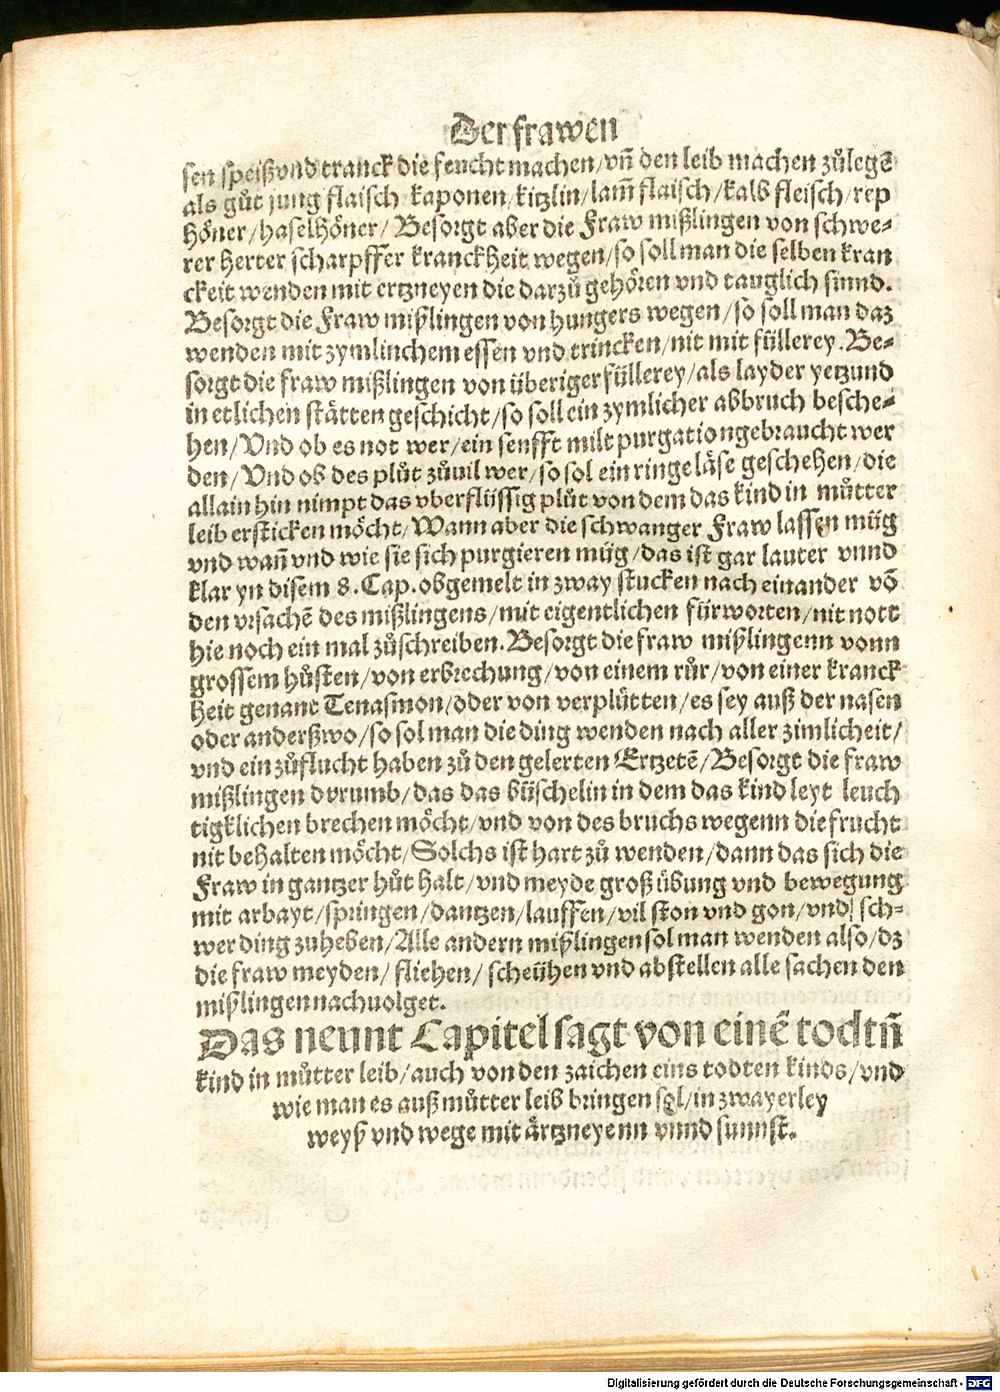 Der frawen
sen speiß vnd tranck die feucht machen/vñ den leib machen zůlegē
als gůt jung flaisch/kaponen/kitzlin/lam̃ flaisch/kalb fleisch/rep
höner/haselhöner/Besorgt aber die Fraw mißlingen von schwe⸗
rer herter scharpffer kranckheit wegen/so soll man die selben kran
ckeit wenden mit ertzneyen die darzů gehören vnd tauglich sinnd.
Besorgt die Fraw mißlingen von hungers wegen/so soll man daz
wenden mit zymlinchem essen vnd trincken/nit mit füllerey. Be⸗
sorgt die fraw mißlingen von überiger füllerey/als layder yetzund
in etlichen stätten geschicht/so soll ein zymlicher abbruch besche⸗
hen/Vnd ob es not wer/ein senfft milt purgation gebraucht wer
den/Vnd ob des plůt zůuil wer/so sol ein ringe läse geschehen/die
allain hin nimpt das vberflüssig plůt von dem das kind in můtter
leib ersticken möcht/Wann aber die schwanger Fraw lassen müg
vnd wañ vnd wie sie sich purgieren müg/das ist gar lauter vnnd
klar yn disem 8. Cap. obgemelt in zway stucken nach einander vō
den vrsachē des mißlingens/mit eigentlichen fürworten/nit nott
hie noch ein mal zůschreiben. Besorgt die fraw mißlingenn vonn
grossem hůsten/von erbrechung/von einem růr/von einer kranck
heit genant Tenasmon/oder von verplütten/es sey auß der nasen
oder anderßwo/so sol man die ding wenden nach aller zimlicheit/
vnd ein zůflucht haben zů den gelerten Ertzetē/Besorgt die fraw
mißlingen dorumb/das das büschelin in dem das kind leyt leuch
tigklichen brechen möcht/vnd von des bruchs wegenn die frucht
nit behalten möcht/Solchs ist hart zů wenden/dann das sich die
Fraw in gantzer hůt halt/vnd meyde groß übung vnd bewegung
mit arbayt/springen/dantzen/lauffen/vil ston vnd gon/vnd sch⸗
wer ding zuheben/Alle andern mißlingen sol man wenden also/dz
die fraw meyden/fliehen/scheühen vnd abstellen alle sachen den
mißlingen nachuolget.
Das neunt Capitel sagt von einē todtñ
kind in můtter leib/auch von den zaichen eins todten kinds/vnd
wie man es auß můtter leib bringen sol/in zwayerley
weyß vnd wege mit ärtzneyenn vnnd sunnst.
Digitalisierung gefördert durch die Deutsche Forschungsgemeinschaft - DFG